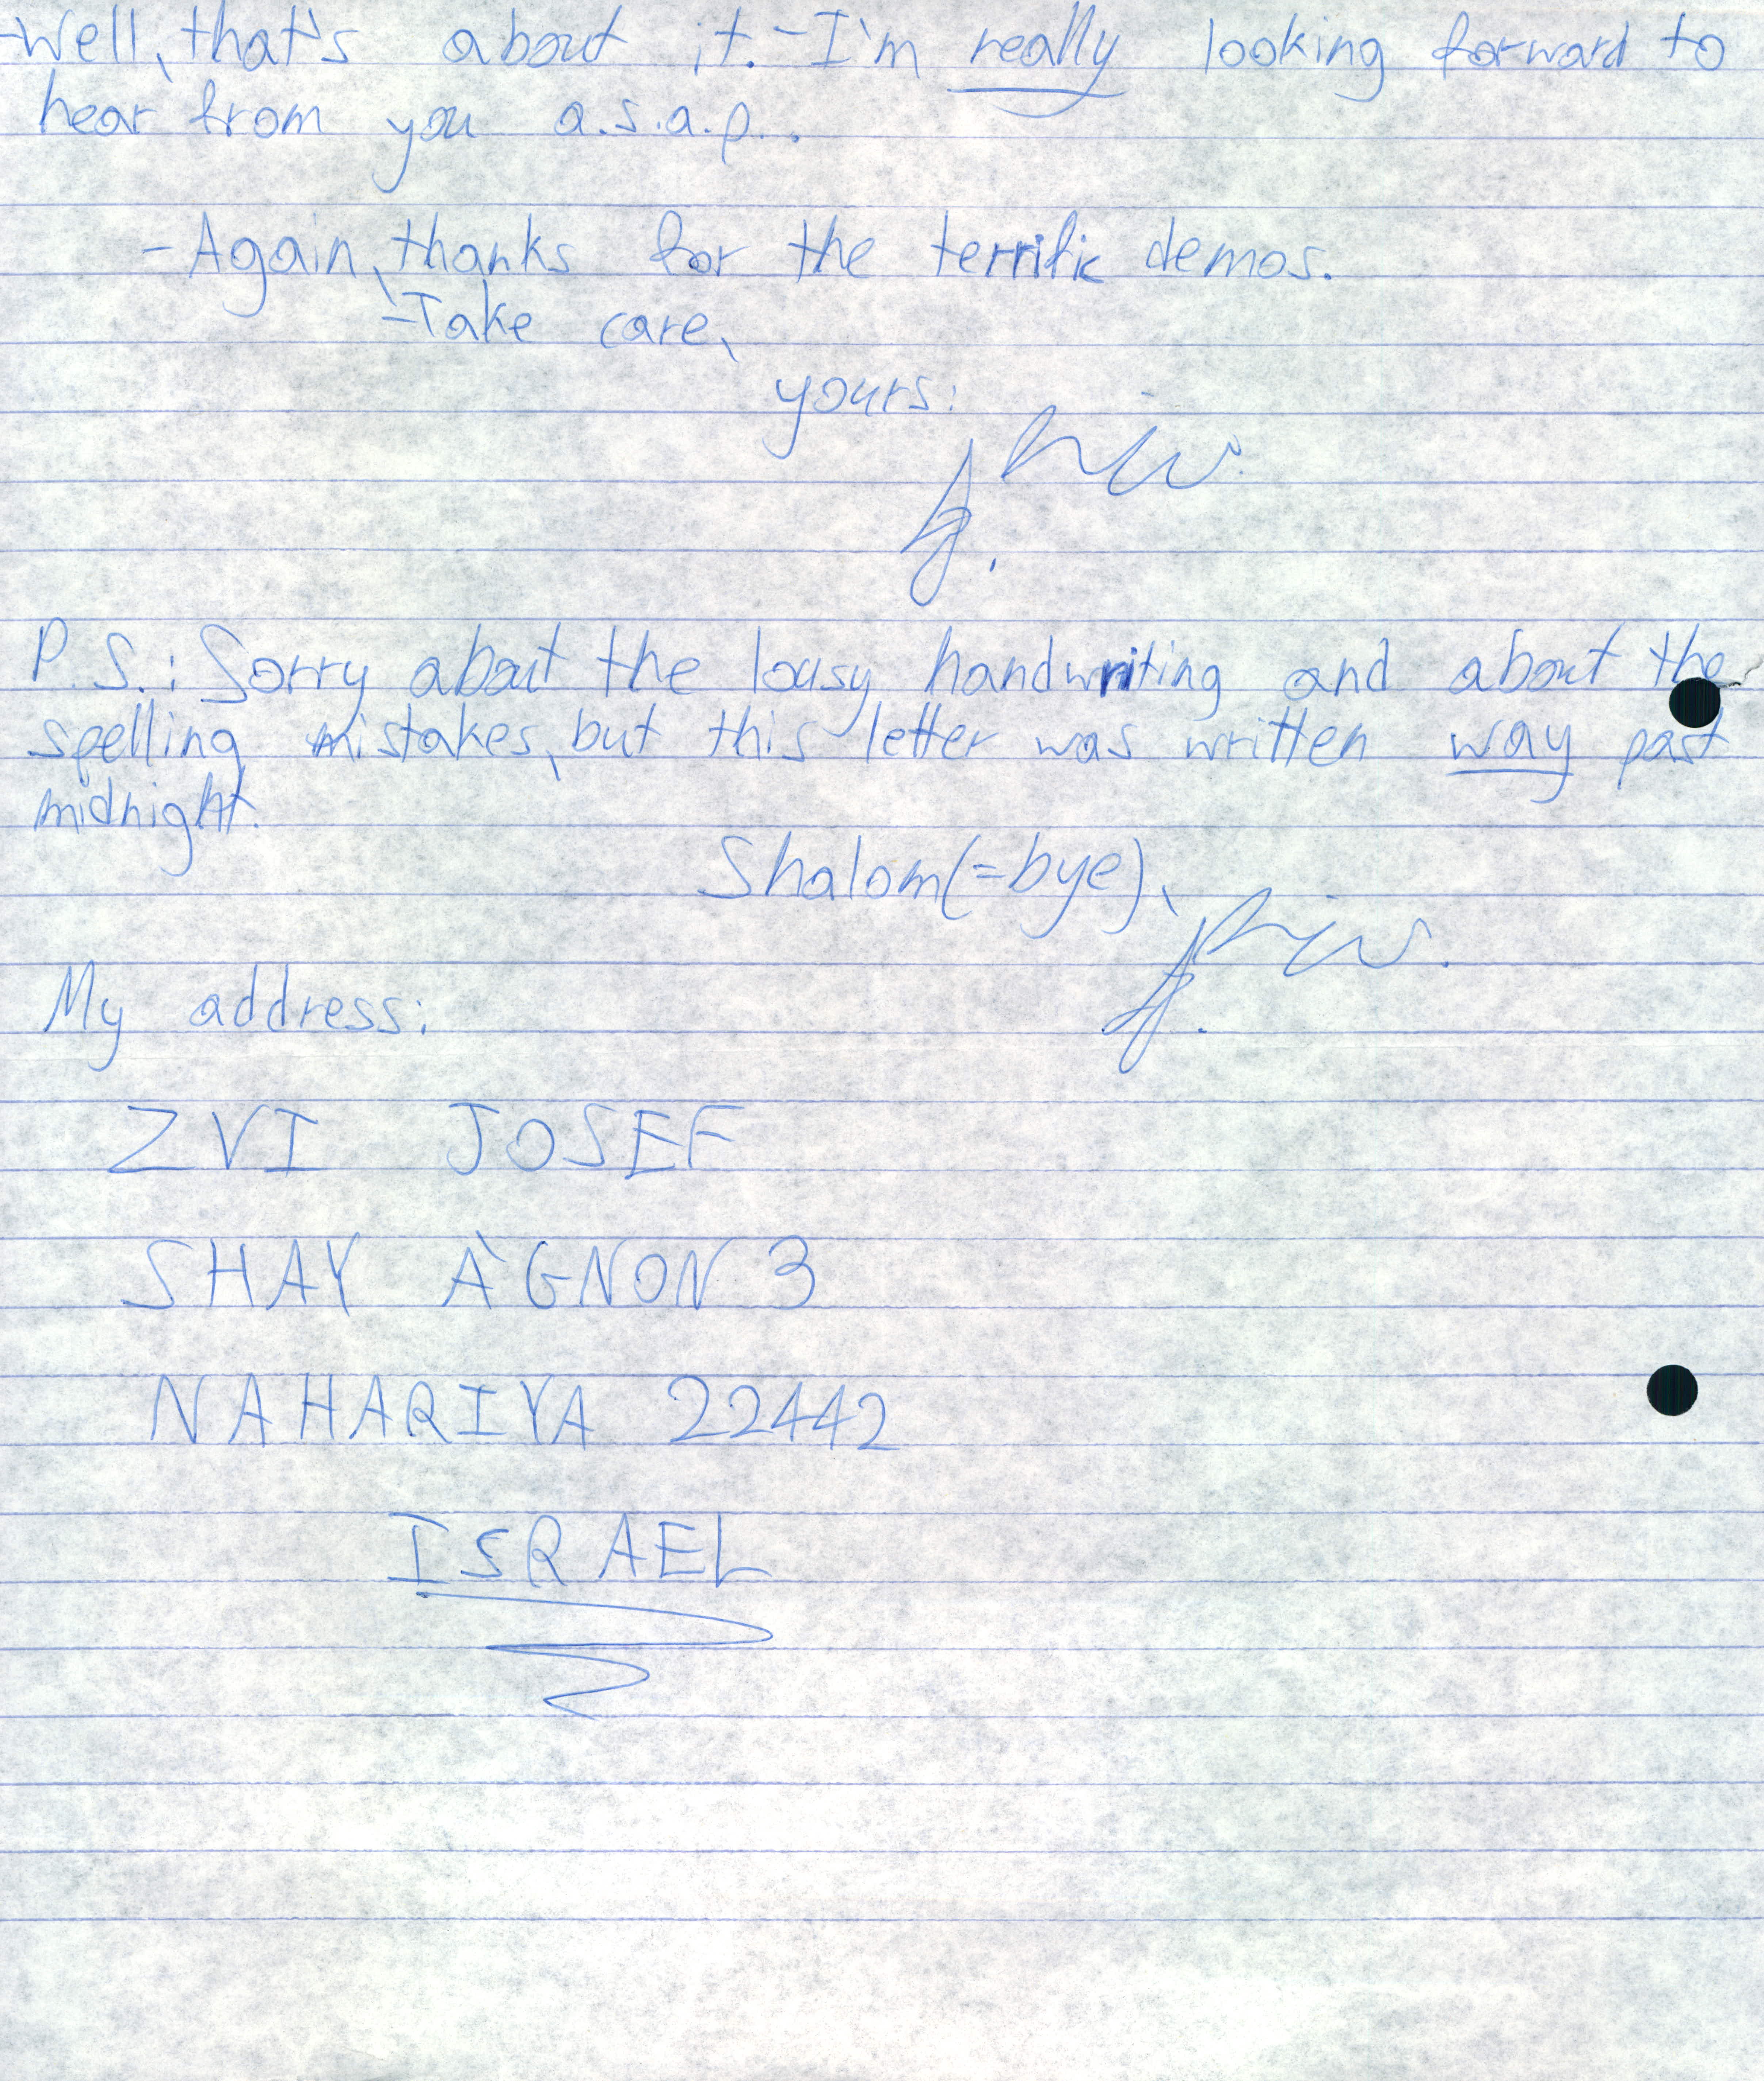 -Well, that's about it. -I'm really looking forward to
hear from you a.s.a.p...
-Again, thanks for the terrific demos.
-Take care,
yours:
P.S.: Sorry about the lousy handwriting and about the
spelling mistakes, but this letter was written way past
midnight.
Shalom(=bye),
My address:
ZVI JOSEF
SHAY A'GNON 3
NAHARIYA 22442
ISRAEL